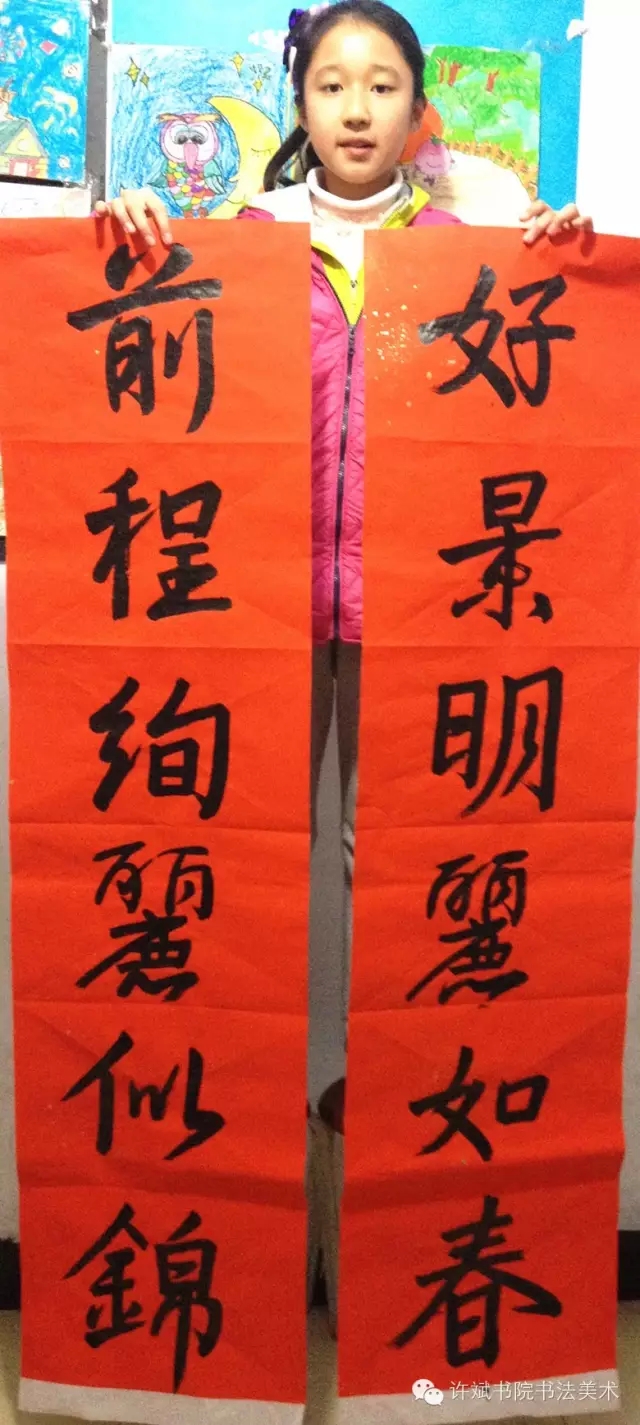 好景明麗如春
前程絢麗似錦
许斌书院书法美术